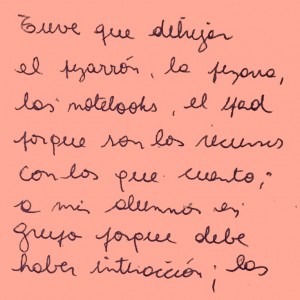 Tuve que dibujar
el pizarrón, la pizarra,
las notebooks, el ipad
porque son los recursos
con los que cuento;
a mis alumnos en
grupo porque debe
haber interacción; las